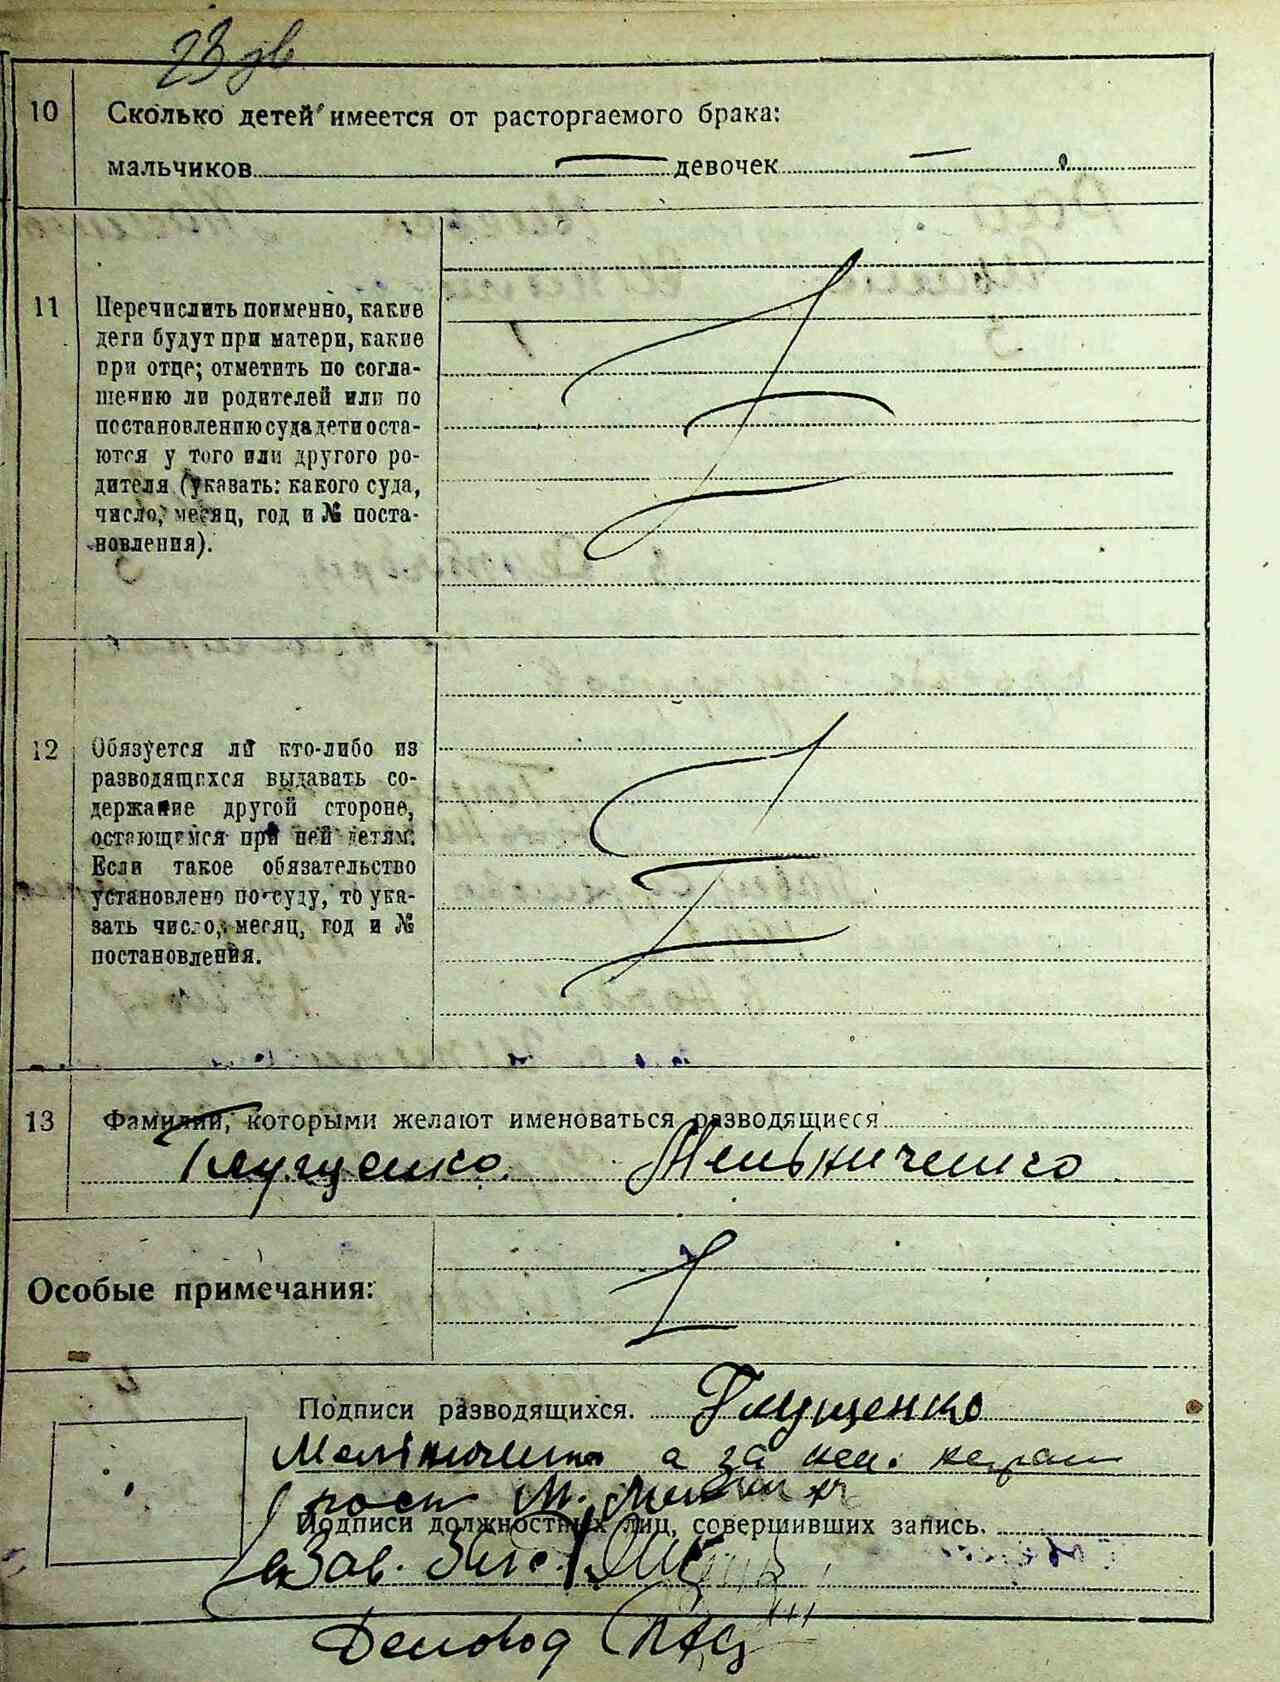 23 зв
10 Сколько детей имеется от расторгаемого брака:
мальчиков — девочек —
11 Перечислить поименно, какие
дети будут при матери, какие
при отце; отметить по согла-
шению ли родителей или по
постановлению суда дети оста-
ются у того или другого ро-
дителя (указать: какого суда,
число, месяц, год и № поста-
новления).
12 Обязуется ли кто-либо из
разводящихся выдавать со-
держание другой стороне,
остающемся при ней детям.
Если такое обязательство
установлено по суду, то ука-
зать число, месяц, год и №
постановления.
13 Фамилии, которыми желают именоваться разводящиеся
Глущенко Мельниченко
Особые примечания:
Подписи разводящихся. Глущенко
Мельниченко а за
Подписи должностных лиц, совершивших запись.
Зав.
Деловод